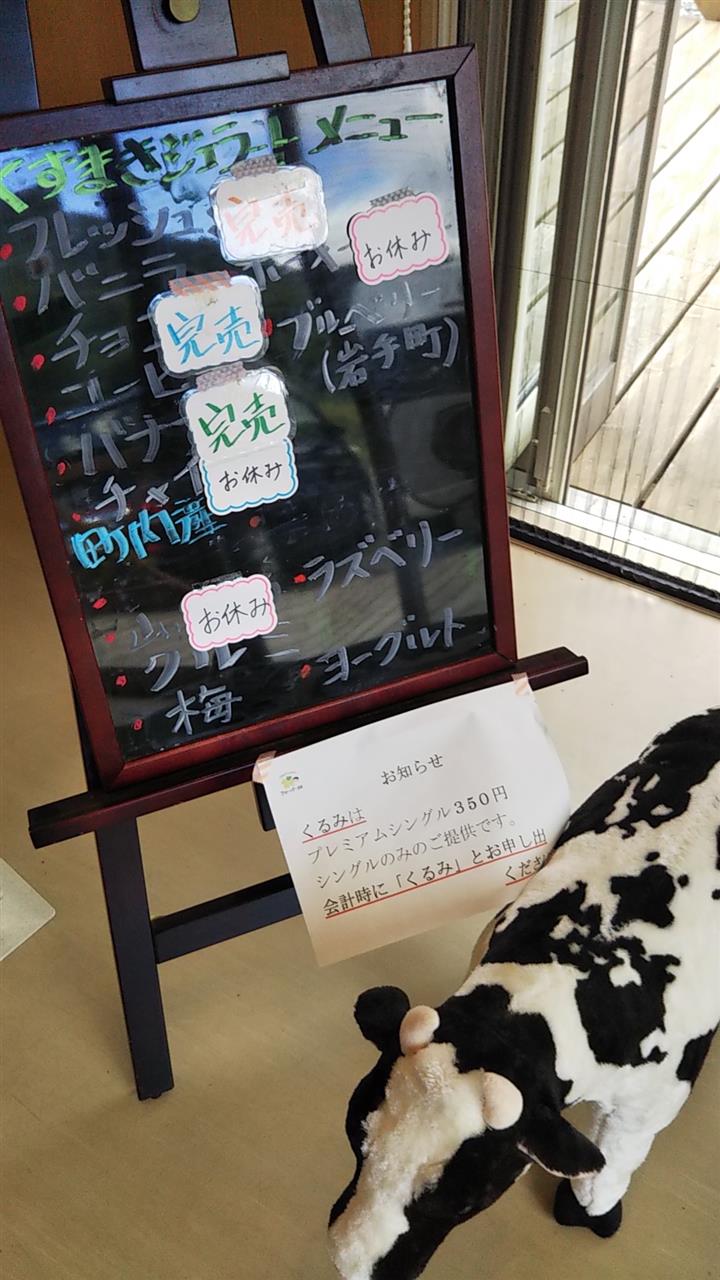 くずまきジェラートメニュー
フレッシュ
完売
バニラ
お休み
チョ
完売
ブルーベリー
(岩手町)
コーヒ
バナナ
完売
チャイ
お休み
町内産
ラズベリー
山
お休み
クルミ
ヨーグルト
梅
お知らせ
くるみは
プレミアムシングル350円
シングルのみのご提供です。
会計時に「くるみ」とお申し出
くださ